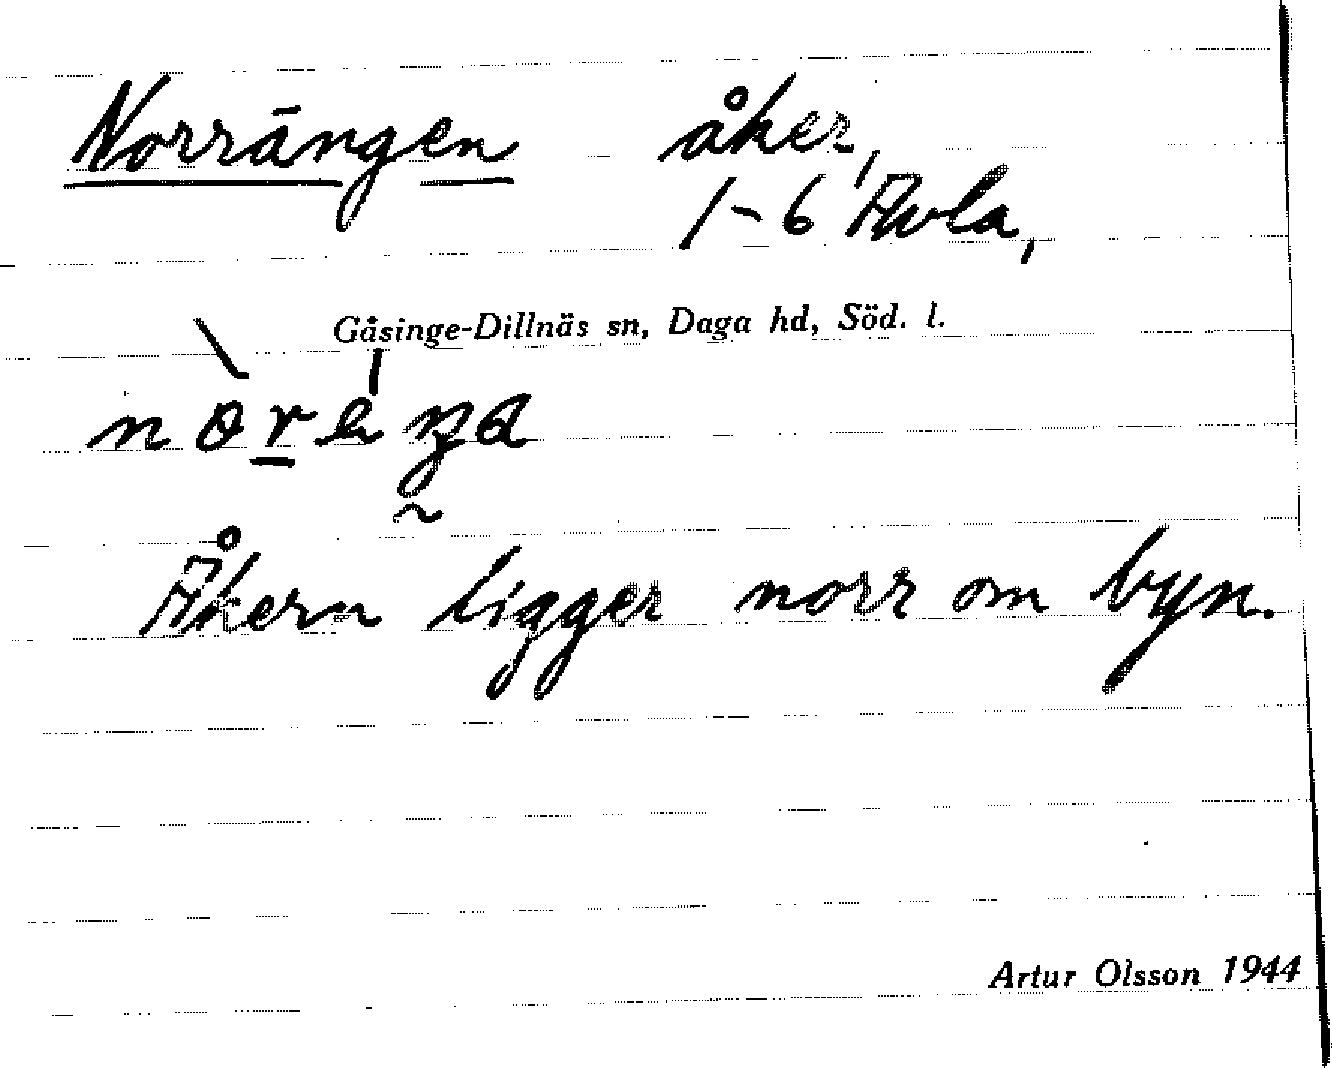 Norrängen åker,
1-6 Avla,
Gåsinge-Dillnäs sn, Daga hd, Söd. l.
Åkern ligger norr om byn.
Artur Olsson 1944